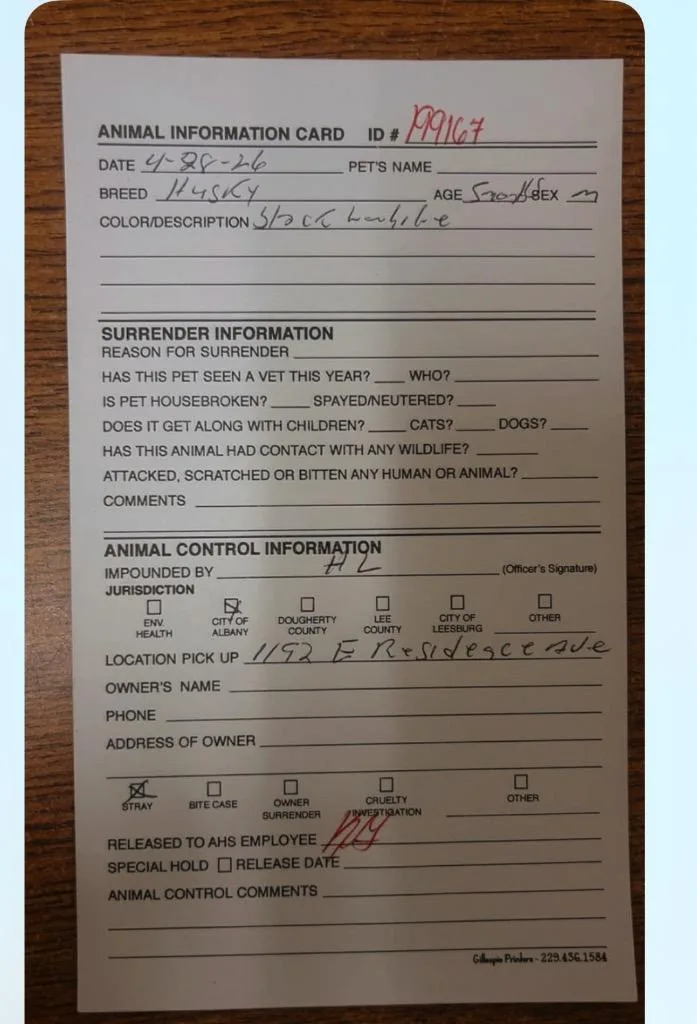 ANIMAL INFORMATION CARD ID # 199167
DATE 4-28-26 PET'S NAME
BREED Husky AGE 5 SEX m
COLOR/DESCRIPTION
SURRENDER INFORMATION
REASON FOR SURRENDER
HAS THIS PET SEEN A VET THIS YEAR? WHO?
IS PET HOUSEBROKEN? SPAYED/NEUTERED?
DOES IT GET ALONG WITH CHILDREN? CATS? DOGS?
HAS THIS ANIMAL HAD CONTACT WITH ANY WILDLIFE?
ATTACKED, SCRATCHED OR BITTEN ANY HUMAN OR ANIMAL?
COMMENTS
ANIMAL CONTROL INFORMATION
IMPOUNDED BY HL (Officer's Signature)
JURISDICTION
ENV. HEALTH CITY OF ALBANY DOUGHERTY COUNTY LEE COUNTY CITY OF LEESBURG OTHER
LOCATION PICK UP 1192 E Residence Ave
OWNER'S NAME
PHONE
ADDRESS OF OWNER
STRAY BITE CASE OWNER SURRENDER CRUELTY INVESTIGATION OTHER
RELEASED TO AHS EMPLOYEE
SPECIAL HOLD RELEASE DATE
ANIMAL CONTROL COMMENTS
Gillespie Printers - 229.436.1584